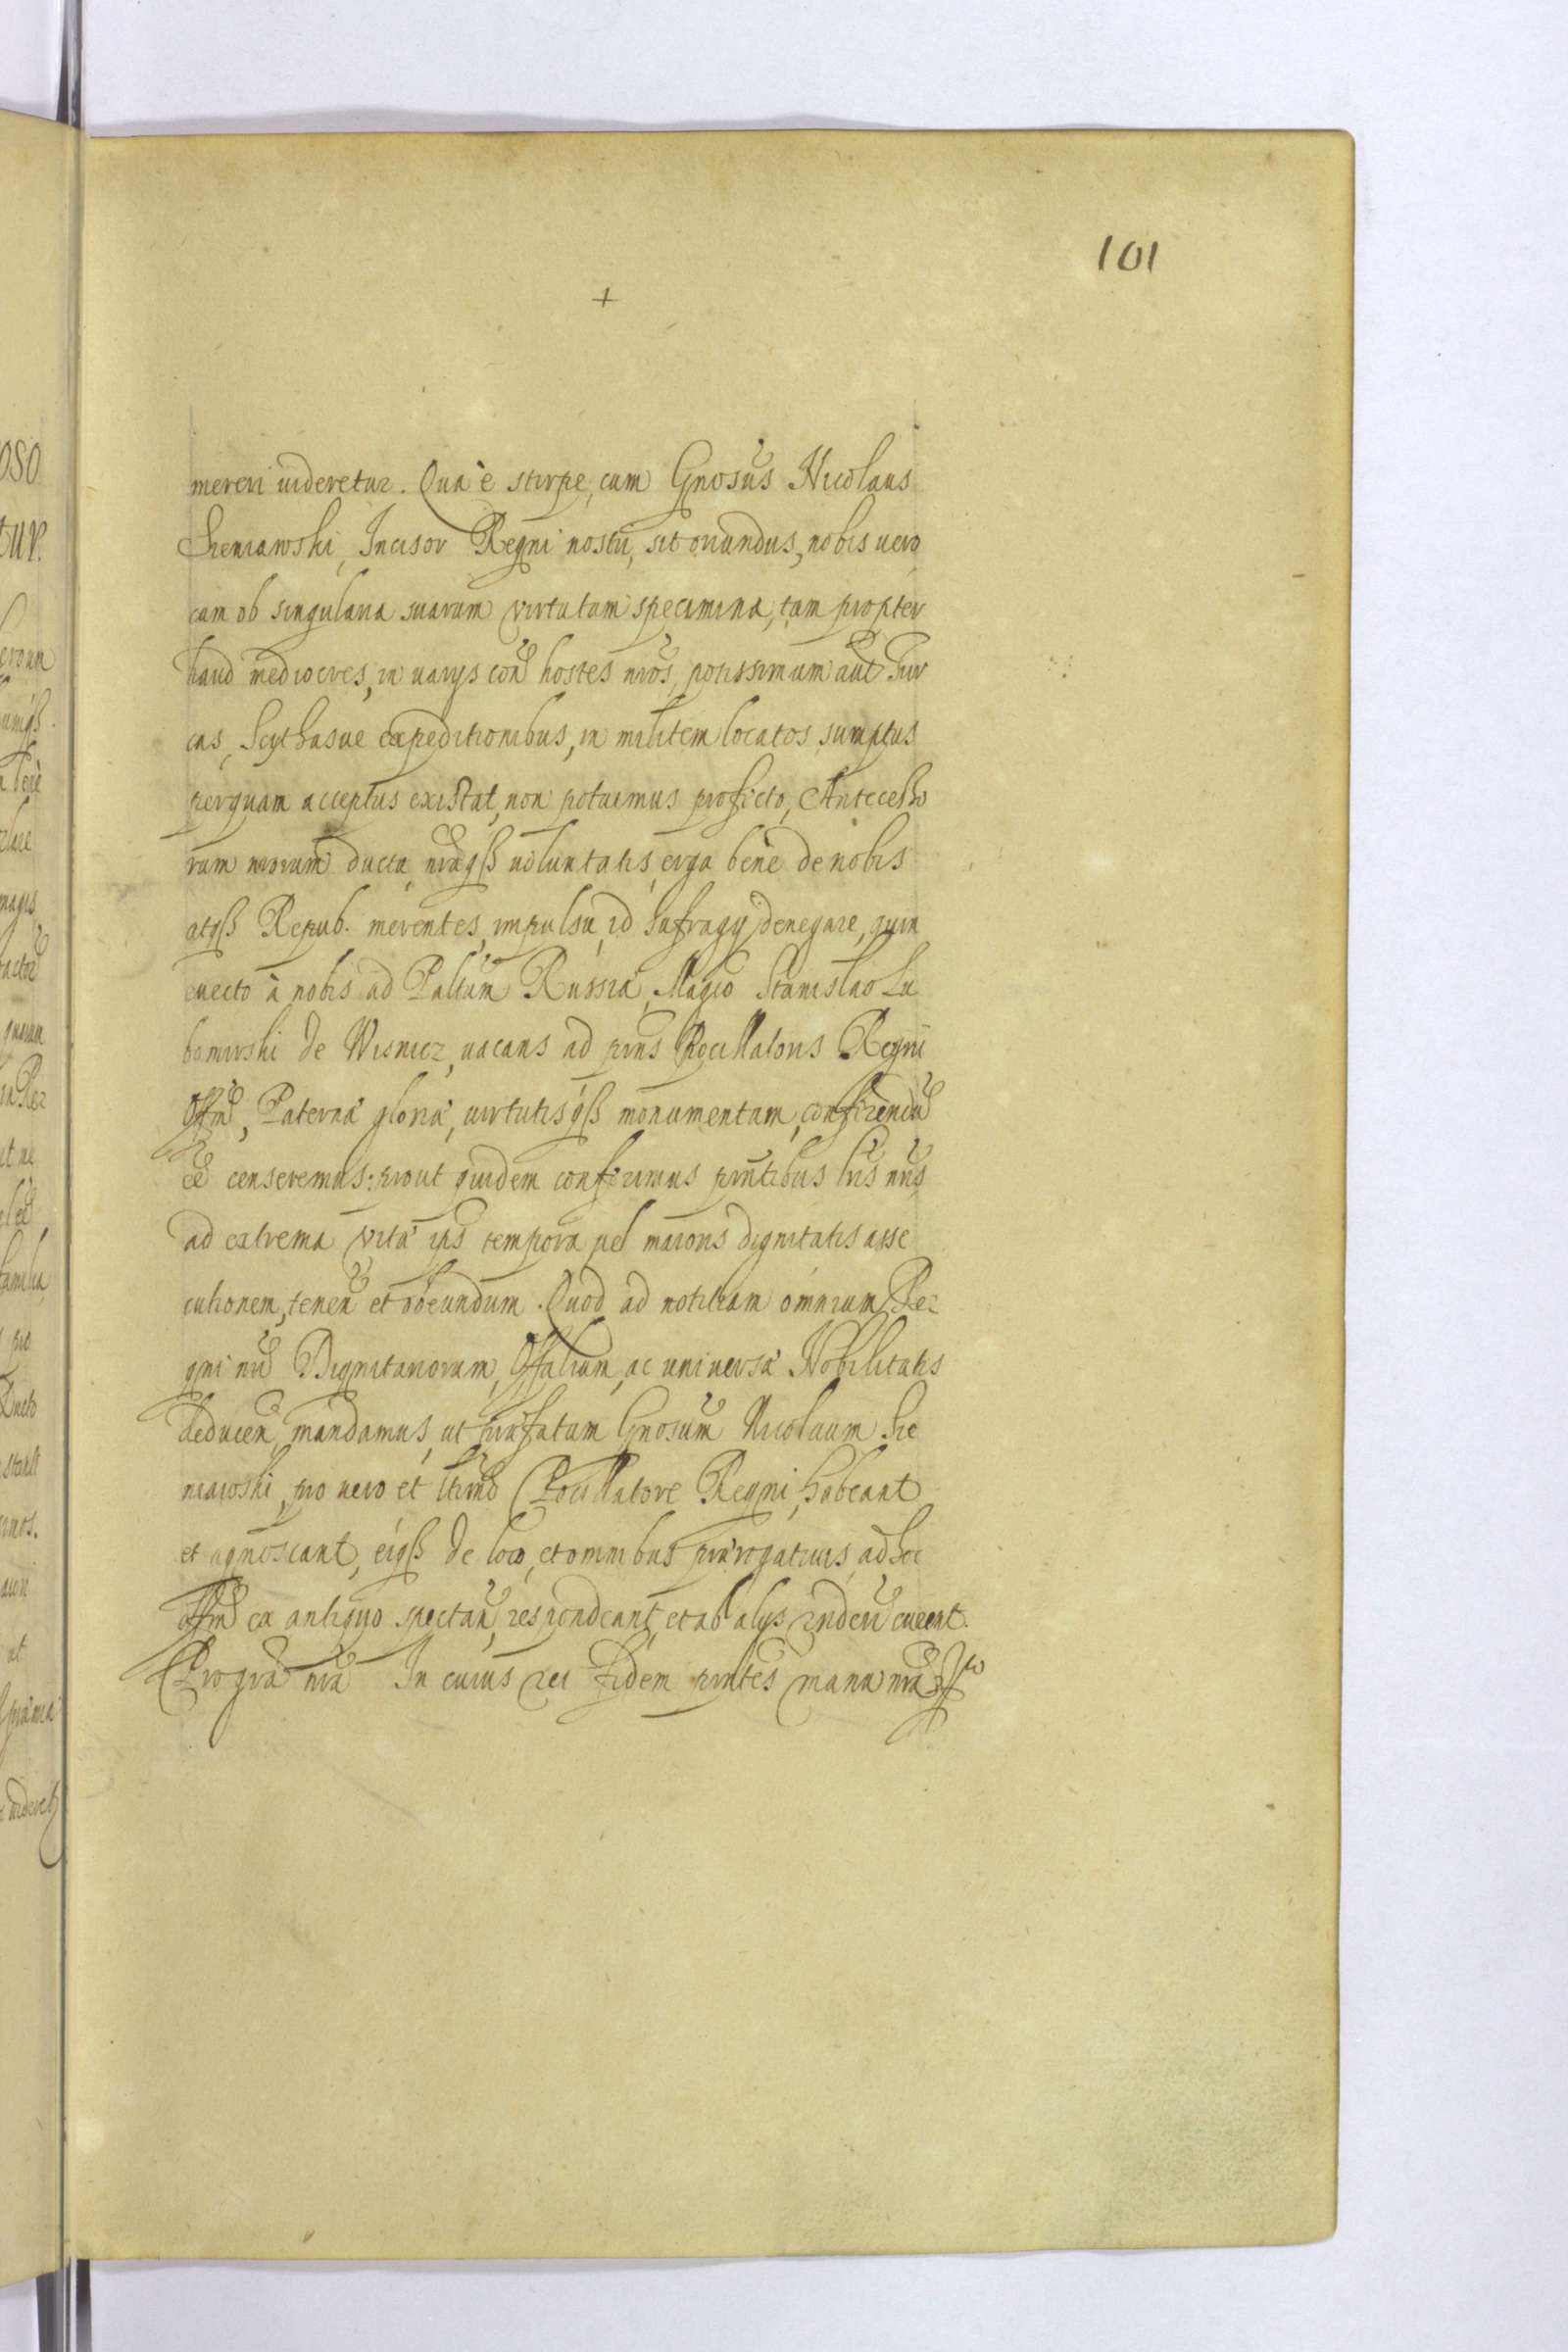 101
+
mereri uideretur. Qua è stirpe, cum Gnosus Nicolaus
Sieniawski, Incisor Regni nostri, sit oriundus, nobis uero
cum ob singularia suarum virtutum specimina, tum propter
haud mediocres, in uarijs con hostes nros, potissimum aut Tur
cas, Scythasue expeditionibus, in militem locatos sumptus
perquam acceptus existat, non potuimus profecto, Antecesso
rum nrorum ductu, nraqß uoluntatis, erga bene de nobis
atqß Repub. merentes, impulsu, id Sufragij denegare, quin
euecto à nobis ad Paltum Russiæ, Magco Stanislao Lu
bomirski de Wisnicz, uacans ad pns Pocillatoris Regni
Offm, Paternæ gloriæ, uirtutisqß monumentum, conferendu
ee censeremus: prout quidem conferimus pntibus lris nris
ad extrema vitæ ips tempora uel maioris dignitatis asse
cutionem, tenen et obeundum. Quod ad notitiam omnium Re
gni nri Dignitariorum, Offalium, ac uniuersæ Nobilitatis
deducen, mandamus, ut præfatum Gnosum Nicolaum Sie
niawski, pro uero et ltimo Pocillatore Regni, habeant
et agnoscant, eiqß de loco, et omnibus prærogatiuis, ad hoc
offm ex antiquo spectan, respondeant, et ab alijs rnderi curent.
Pro gra nra In cuius rei fidem pntes manu nra